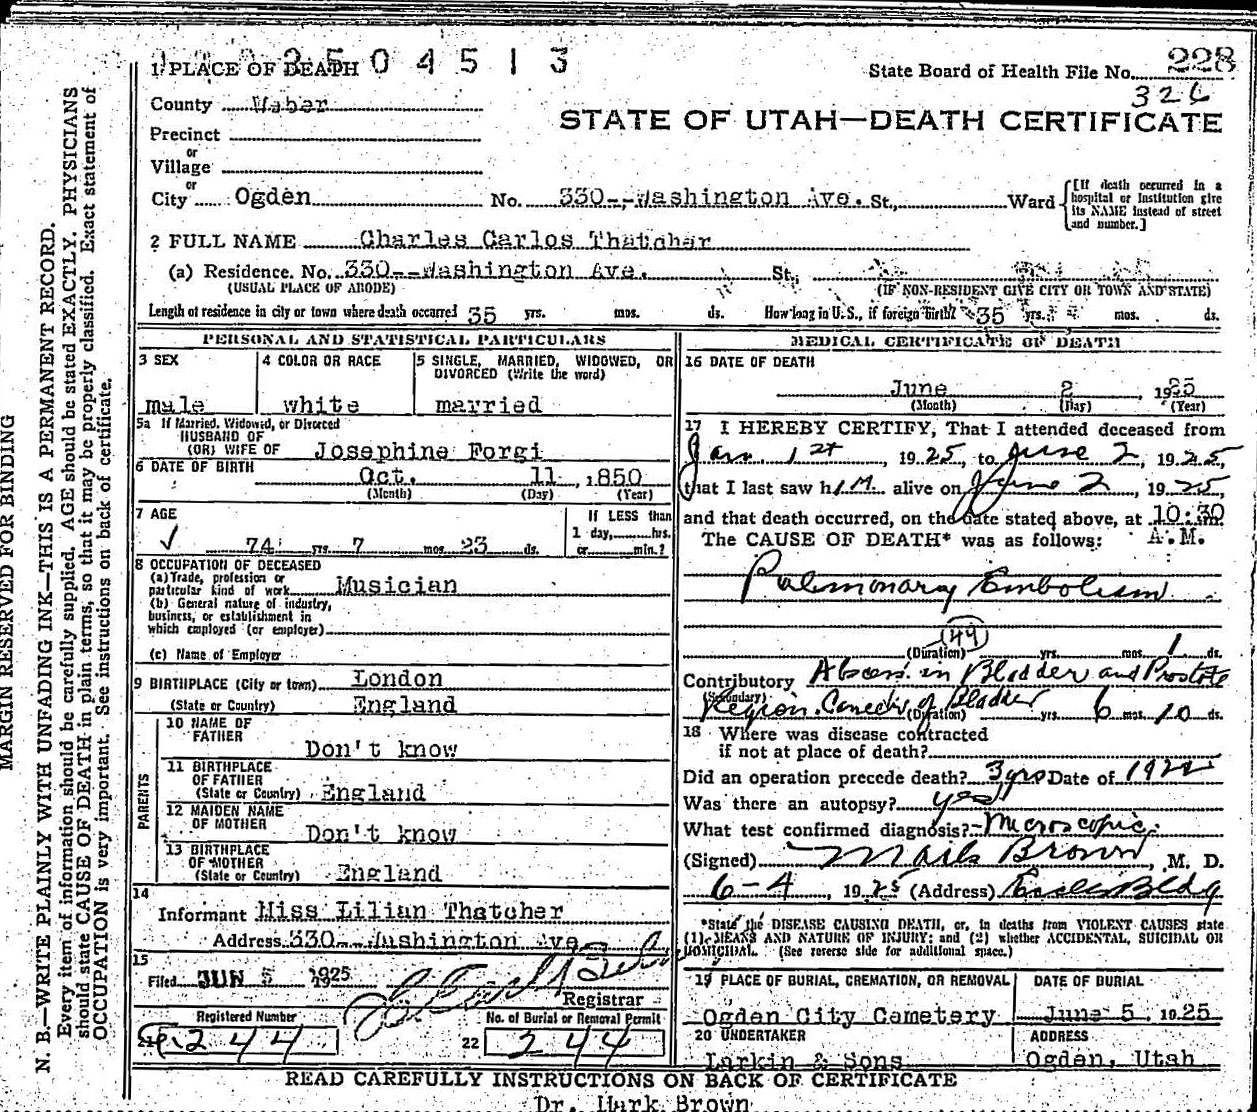 5 0 4 5 1 3
1 PLACE OF DEATH
State Board of Health File No. 228
326
County Weber
STATE OF UTAH—DEATH CERTIFICATE
Precinct
or
Village
or
City Ogden No. 330--Washington Ave. St., Ward
[If death occurred in a hospital or institution give its NAME instead of street and number.]
2 FULL NAME Charles Carlos Thatcher
(a) Residence. No. 330--Washington Ave. St.,
(USUAL PLACE OF ABODE) (IF NON-RESIDENT GIVE CITY OR TOWN AND STATE)
Length of residence in city or town where death occurred 35 yrs. mos. ds. How long in U. S., if foreign birth? 35 yrs. mos. ds.
PERSONAL AND STATISTICAL PARTICULARS
3 SEX
male
4 COLOR OR RACE
white
5 SINGLE, MARRIED, WIDOWED, OR
DIVORCED (Write the word)
married
5a If Married, Widowed, or Divorced
HUSBAND OF
(OR) WIFE OF Josephine Forgi
6 DATE OF BIRTH Oct. 11, 1850
(Month) (Day) (Year)
7 AGE
74 yrs. 7 mos. 23 ds.
If LESS than
1 day, hrs.
or min.?
8 OCCUPATION OF DECEASED
(a) Trade, profession or
particular kind of work Musician
(b) General nature of industry,
business, or establishment in
which employed (or employer)
(c) Name of Employer
9 BIRTHPLACE (City or town) London
(State or Country) England
PARENTS
10 NAME OF
FATHER Don't know
11 BIRTHPLACE
OF FATHER
(State or Country) England
12 MAIDEN NAME
OF MOTHER Don't know
13 BIRTHPLACE
OF MOTHER
(State or Country) England
14
Informant Miss Lilian Thatcher
Address 330--Washington Ave
15
Filed JUN 5 1925
Registrar
Registered Number
244
No. of Burial or Removal Permit
22 244
MEDICAL CERTIFICATE OF DEATH
16 DATE OF DEATH
June 2 1925
(Month) (Day) (Year)
17 I HEREBY CERTIFY, That I attended deceased from
Jan. 1st, 1925, to June 2, 1925,
that I last saw him alive on June 2, 1925,
and that death occurred, on the date stated above, at 10:30 m.
The CAUSE OF DEATH* was as follows: A.M.
Pulmonary Embolism
(44)
(Duration) yrs. mos. 1 ds.
Contributory Abcess in Bladder and Prostate
(Secondary) Region. of Bladder
(Duration) yrs. 6 mos. 10 ds.
18 Where was disease contracted
if not at place of death?
Did an operation precede death? 3 yrs Date of 1922
Was there an autopsy? yes
What test confirmed diagnosis? Microscopic
(Signed) Brown, M. D.
6-4, 1925 (Address) Eccles Bldg
*State the DISEASE CAUSING DEATH, or, in deaths from VIOLENT CAUSES state
(1) MEANS AND NATURE OF INJURY; and (2) whether ACCIDENTAL, SUICIDAL OR
HOMICIDAL. (See reverse side for additional space.)
19 PLACE OF BURIAL, CREMATION, OR REMOVAL
Ogden City Cemetery
DATE OF BURIAL
June 5, 1925
20 UNDERTAKER
Larkin & Sons
ADDRESS
Ogden, Utah
READ CAREFULLY INSTRUCTIONS ON BACK OF CERTIFICATE
Dr. Mark Brown
MARGIN RESERVED FOR BINDING
N. B.—WRITE PLAINLY WITH UNFADING INK—THIS IS A PERMANENT RECORD.
Every item of information should be carefully supplied. AGE should be stated EXACTLY. PHYSICIANS
should state CAUSE OF DEATH in plain terms, so that it may be properly classified. Exact statement of
OCCUPATION is very important. See instructions on back of certificate.